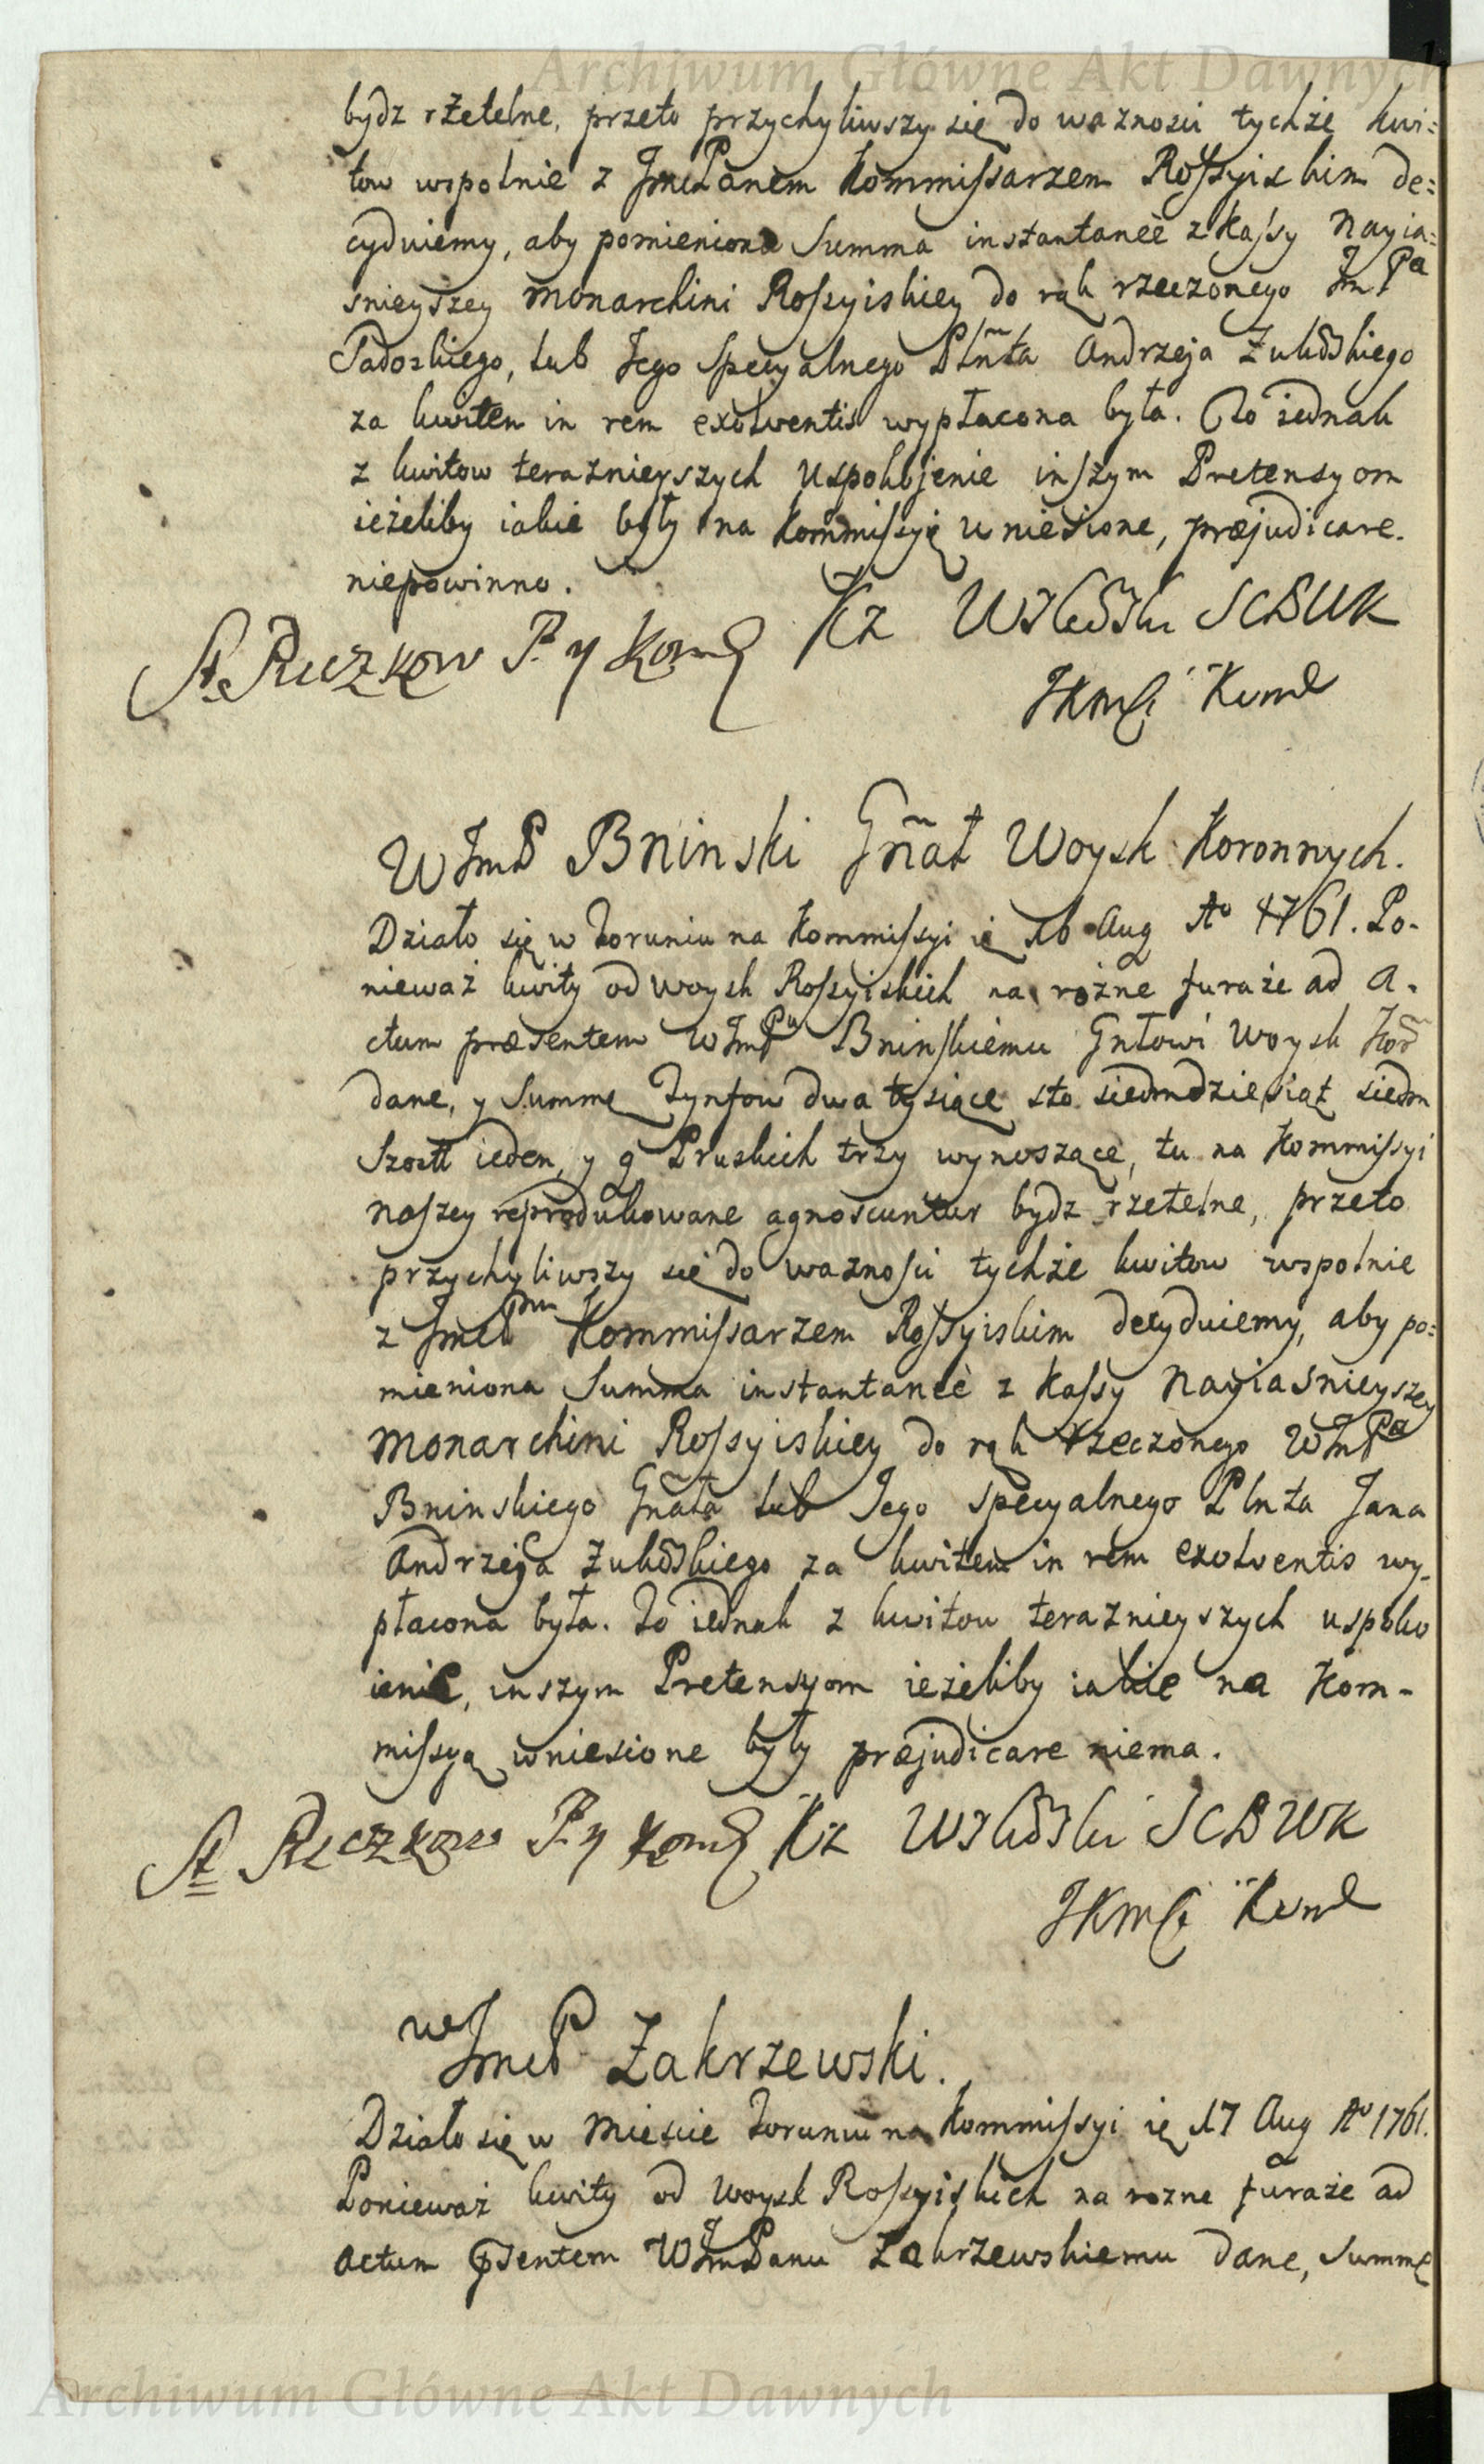 Archiwum Główne Akt Dawnych
bydz rżetelne, przeto przychyliwszy się do waznosci tychże kwi=
tow wspolnie z JmcPanem Kommissarzem Rossyiskim de=
cyduiemy, aby pomieniona Summa instantanèe z Kassy Nayia=
snieyszey Monarchini Rossyiskiey do rąk rzeczonego JmPa
Padoskiego, lub Jego Specyalnego Plñta Andrzeja
za kwitem in rem exolventis wypłacona była. To iednak
z kwitow teraznieyszych uspokojenie inszym Pretensyom
ieżeliby iakie były na Kommissyię wniesione, præjudicare
niepowinno.
P. y
SCBWK
JKMći
WJmP Bninski Gñał Woysk Koronnych.
Działo się w Toruniu na Kommissyi ię 16 Aug Ao 1761. Po-
nieważ kwity od woysk Rossyiskich na rożne furaże ad A-
ctum præsentem WJmPu Bninskiemu Gnłowi Woysk Kor
dane, y Summę Tynfow dwa tysiące sto siedmdziesiąt siedm
Szostł ieden, y g Pruskich trzy wynoszące, tu na Kommissyi
naszey reprodukowane agnoscuntur bydz rzetelne, przeto
przychyliwszy się do waznosci tychże kwitow wspolnie
z JmcPnm Kommissarzem Rossyiskim decyduiemy, aby po=
mieniona Summa instantanèe z Kassy Nayiasnieyszey
Monarchini Rossyiskiey do rąk rzeczonego WJmPa
Bninskiego Gñała lub Jego specyalnego Plnta Jana
Andrzeja za kwitem in rem exolventis wy-
płacona była. To iednak z kwitow teraznieyszych uspoko
ienie, inszym Pretensyom ieżeliby iakie na Kom-
missyą wniesione były præjudicare niema.
P. y
SCBWK
JKMći
WJmcP Zakrzewski.
Działo się w Miescie Toruniu na Kommissyi ię 17 Aug Ao 1761.
Ponieważ kwity od Woysk Rossyiskich na rozne furaże ad
Actum psentem WJmPanu Zakrzewskiemu dane, Summę
Archiwum Główne Akt Dawnych